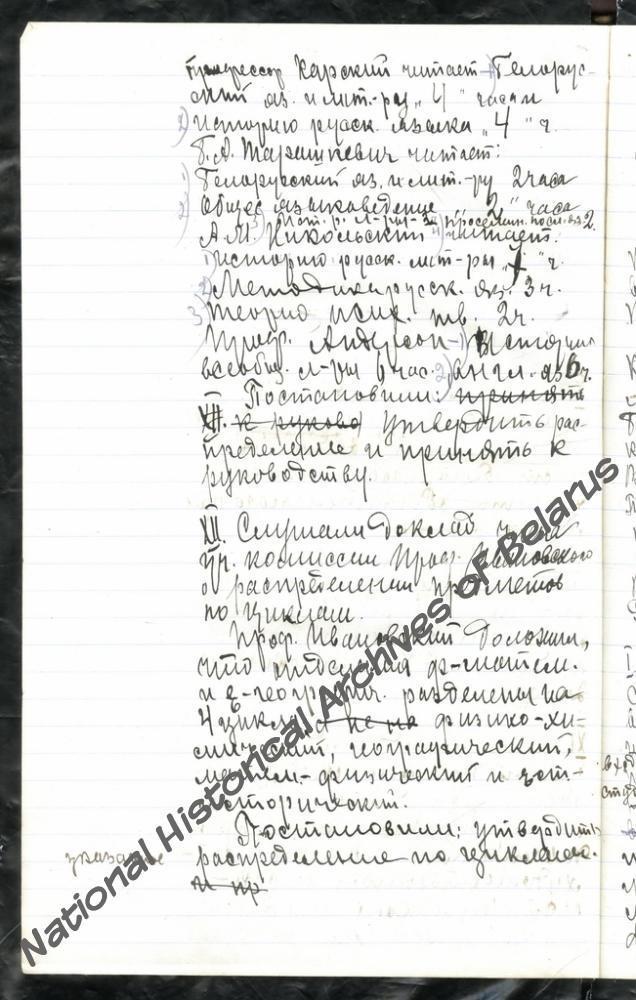 Профессор Карский читает 1) Белорус-
ский яз. и лит.-ру „4" часа
2) историю русск. языка „4" ч.
Б. А. Тарашкевич читает:
1) Белорусский яз. и лит.-ру 2 часа
2) Общее языковедение „2" часа
3) Ист. р. л-ры
А. М. Никольский читает:
1) историю русск. лит-ры ч.
2) Методика русск. яз. 3 ч.
3) Теорию псих. тв. 2 ч.
Проф. Андерсон 1) История
всеобщ. л-ры 6 час. 2) англ. яз 6 ч.
Постановили: принять
XII. к руково утвердить рас-
пределение и принять к
руководству.
XIII. Слушали доклад члена
уч. комиссии проф. Ивановского
о распределении предметов
по циклам.
Проф. Ивановский доложил,
что отделения ф-матем.
и е-географич. разделены на
4 цикла: физико-хи-
мический, географический,
матем.-физический и ест-
исторический.
Постановили: утвердить
указание
распределение по циклам.
и пр
National Historical Archives of Belarus